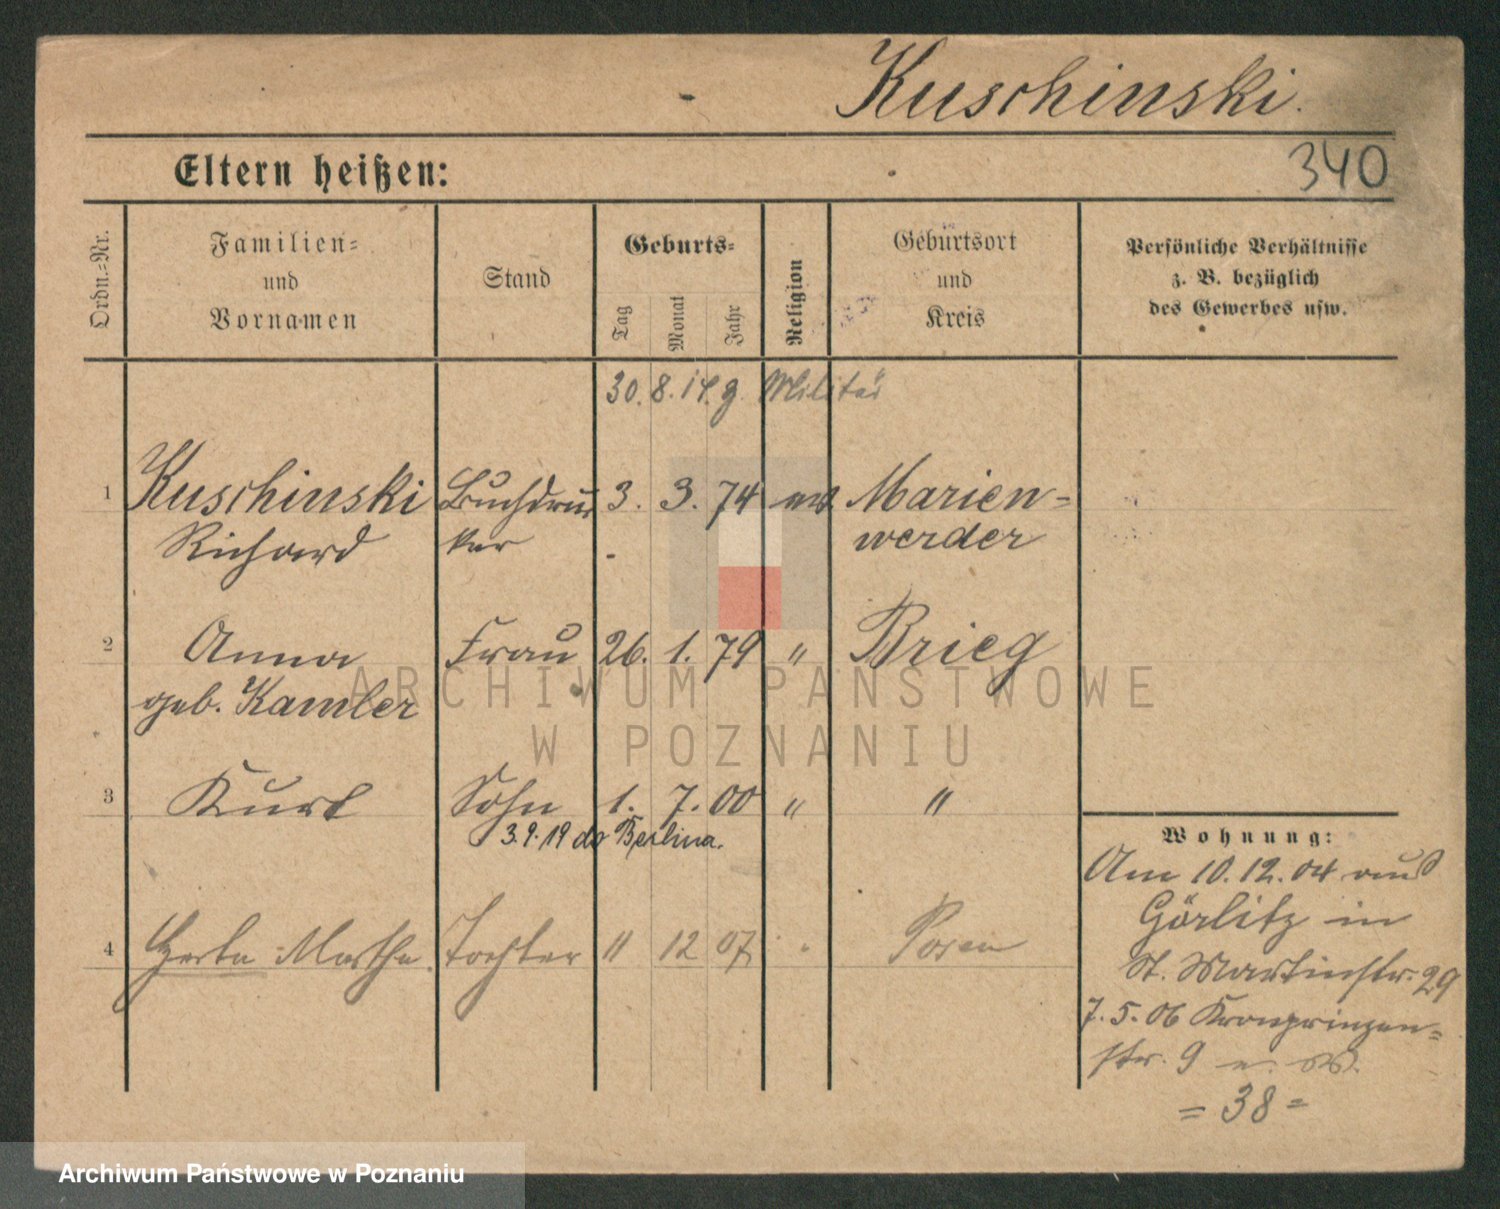 Kuschinski.
Eltern heißen:
340
Ordn.=Nr.
Familien=
und
Vornamen
Stand
Geburts=
Tag
Monat
Jahr
Religion
Geburtsort
und
Kreis
Persönliche Verhältnisse
z. B. bezüglich
des Gewerbes usw.
30. 8. 14. z. Militär
1 Kuschinski Buchdruc 3. 3. 74 ev. Marien=
Richard ker werder
2 Anna Frau 26. 1. 79 " Brieg
geb. Kamler
3 Kurt Sohn 1. 7. 00 " "
3.9.19 do Berlina.
4 Herta Marthe Tochter 11 12 07 Posen
Wohnung:
Am 10.12.04 aus
Görlitz in
St. Martinstr. 29
7.5.06 Kronprinzen=
str. 9
= 38 =
ARCHIWUM PAŃSTWOWE
W POZNANIU
Archiwum Państwowe w Poznaniu